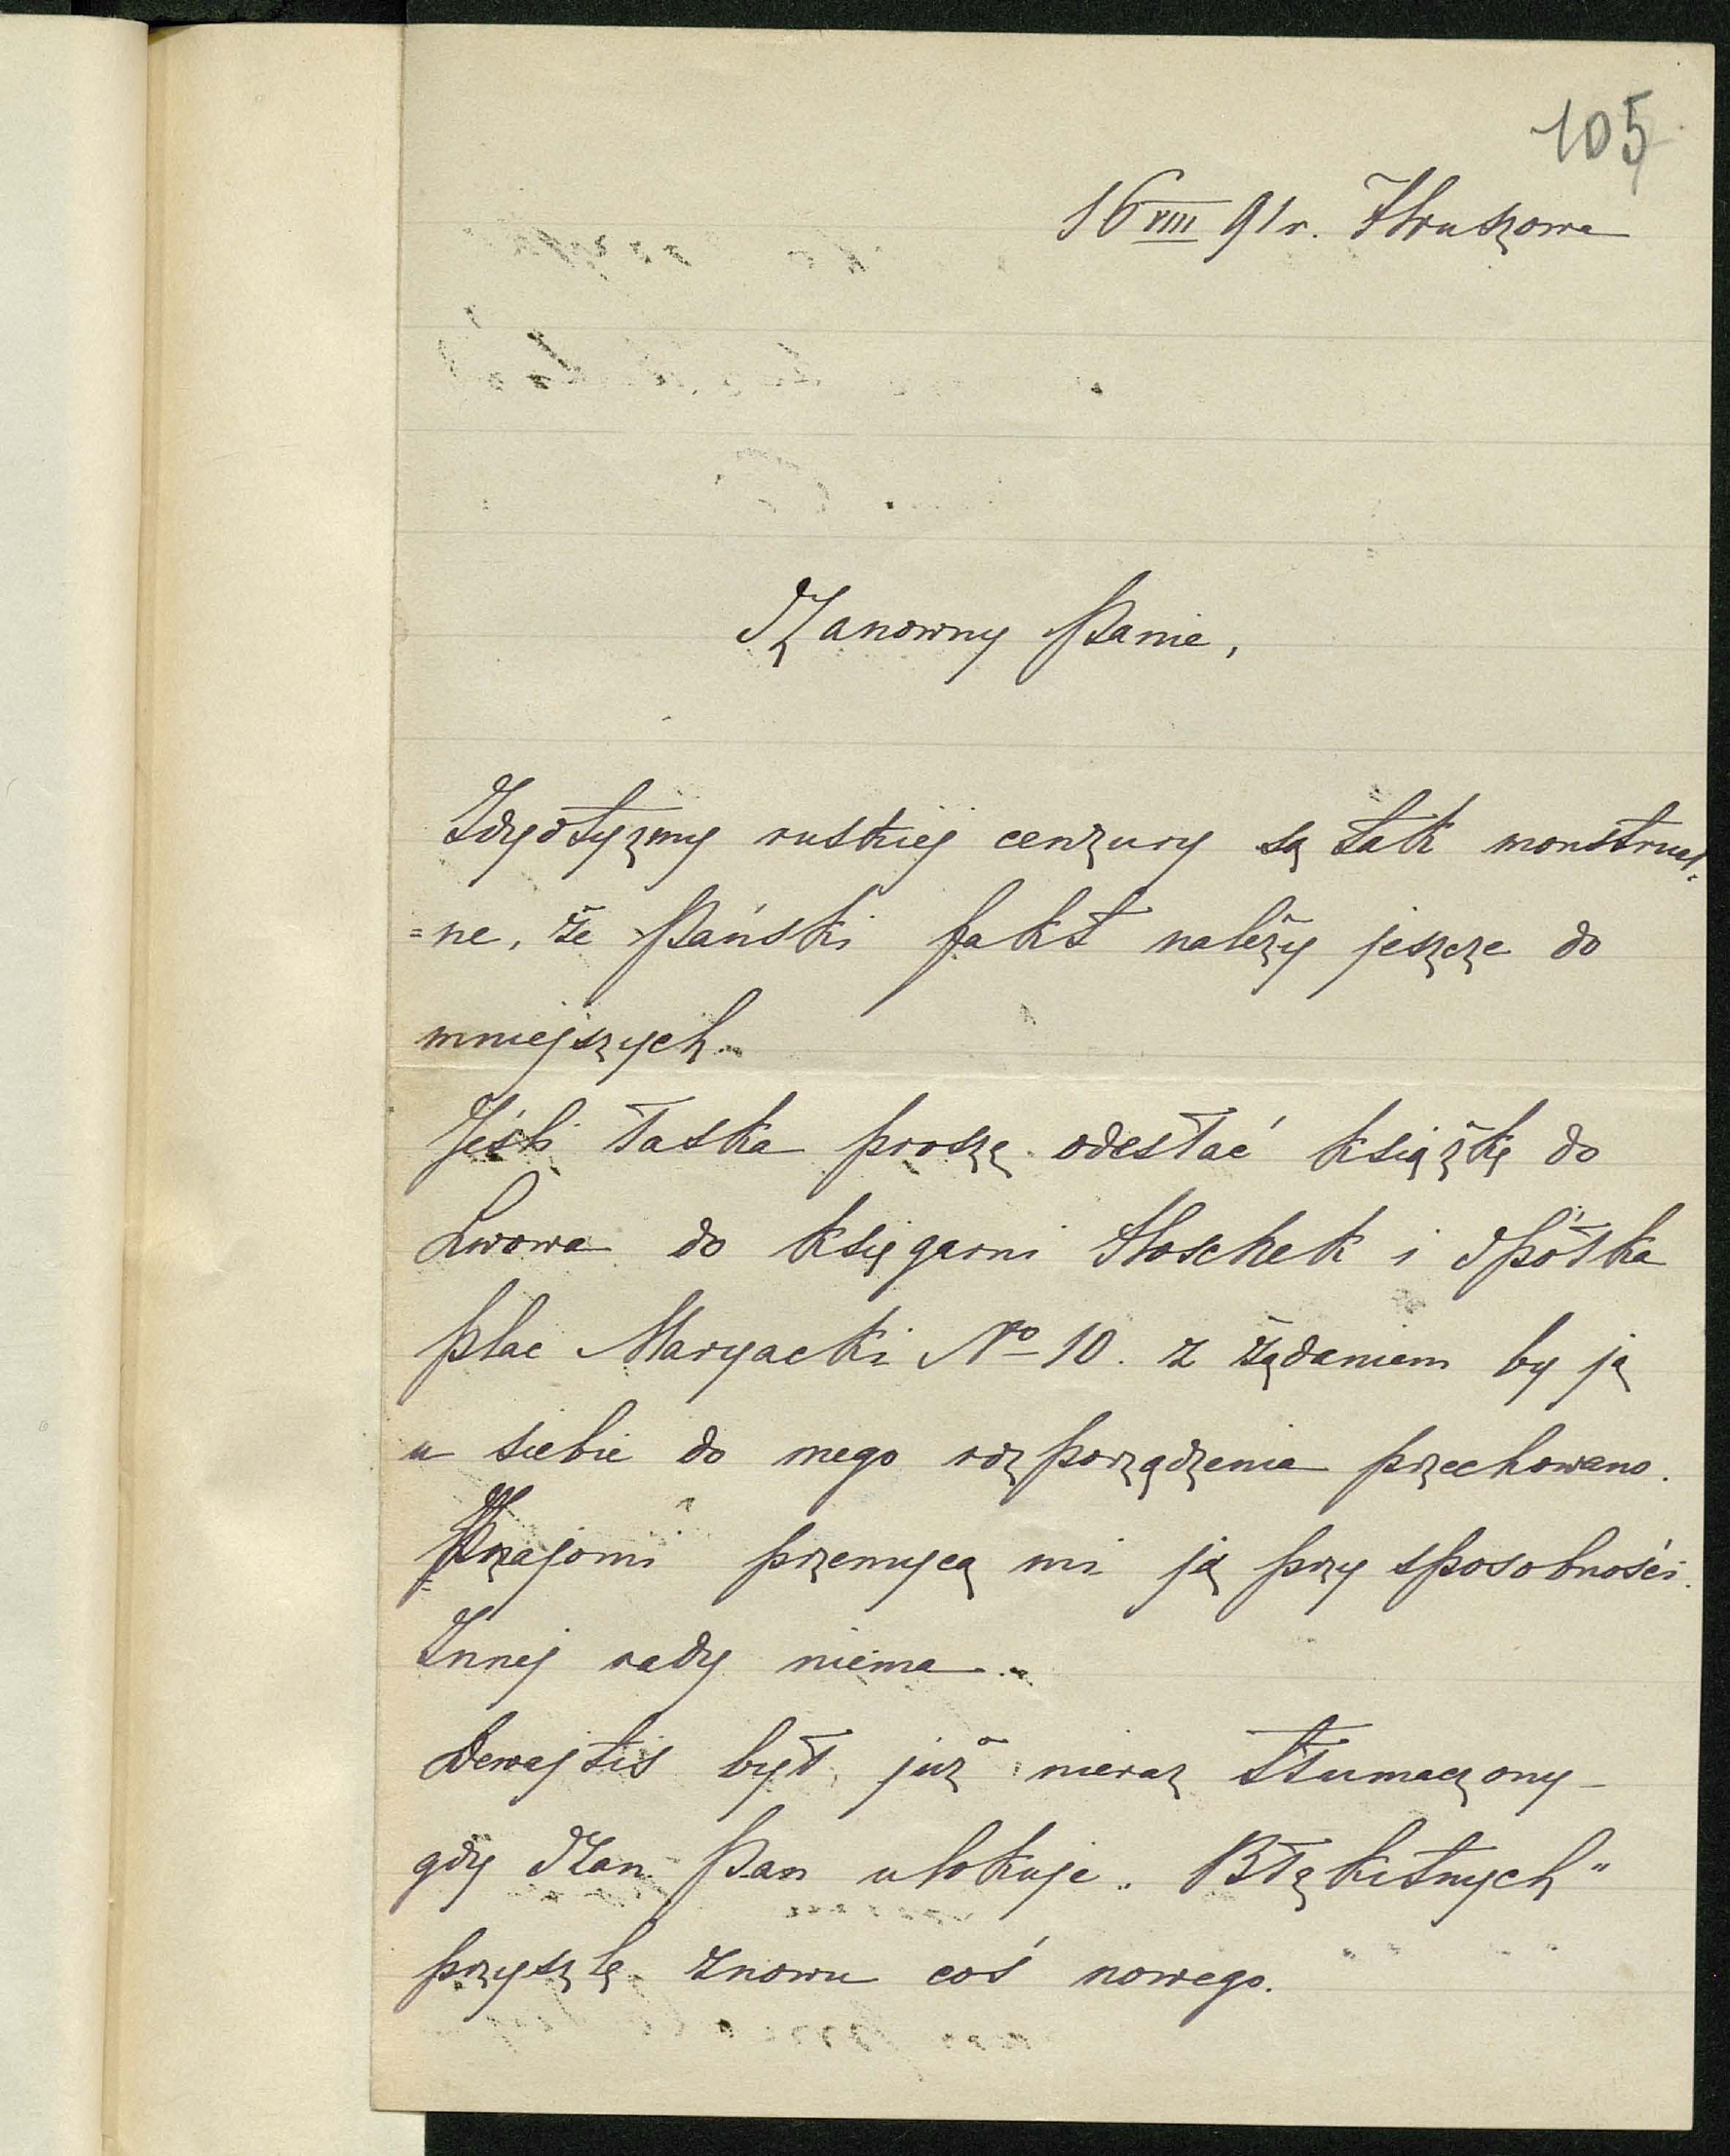 105
16 VIII 91 r. Hruszowa
Szanowny Panie,
Idyotyzmy ruskiej cenzury są tak monstrual=
=ne, że Pański fakt należy jeszcze do
mniejszych.
Jeśli łaska proszę odesłać książkę do
Lwowa do księgarni Stoschek i Spółka
plac Maryacki No 10. z żądaniem by ją
u siebie do mego rozporządzenia przechowano.
Znajomi przemycą mi ją przy sposobności.
Innej rady niema.
Dewajtis był już nieraz tłumaczony –
gdy Szan Pan ulokuje „Błękitnych"
przyszlę znowu coś nowego.